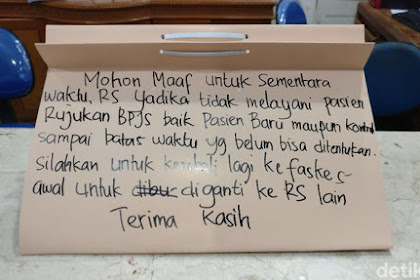 Mohon Maaf untuk Sementara
waktu, RS Yadika tidak melayani pasien
Rujukan BPJS baik Pasien Baru maupun kontrol
sampai batas waktu yg belum bisa ditentukan.
Silahkan untuk kembali lagi ke faskes
awal untuk dibu diganti ke RS lain
Terima Kasih
detik